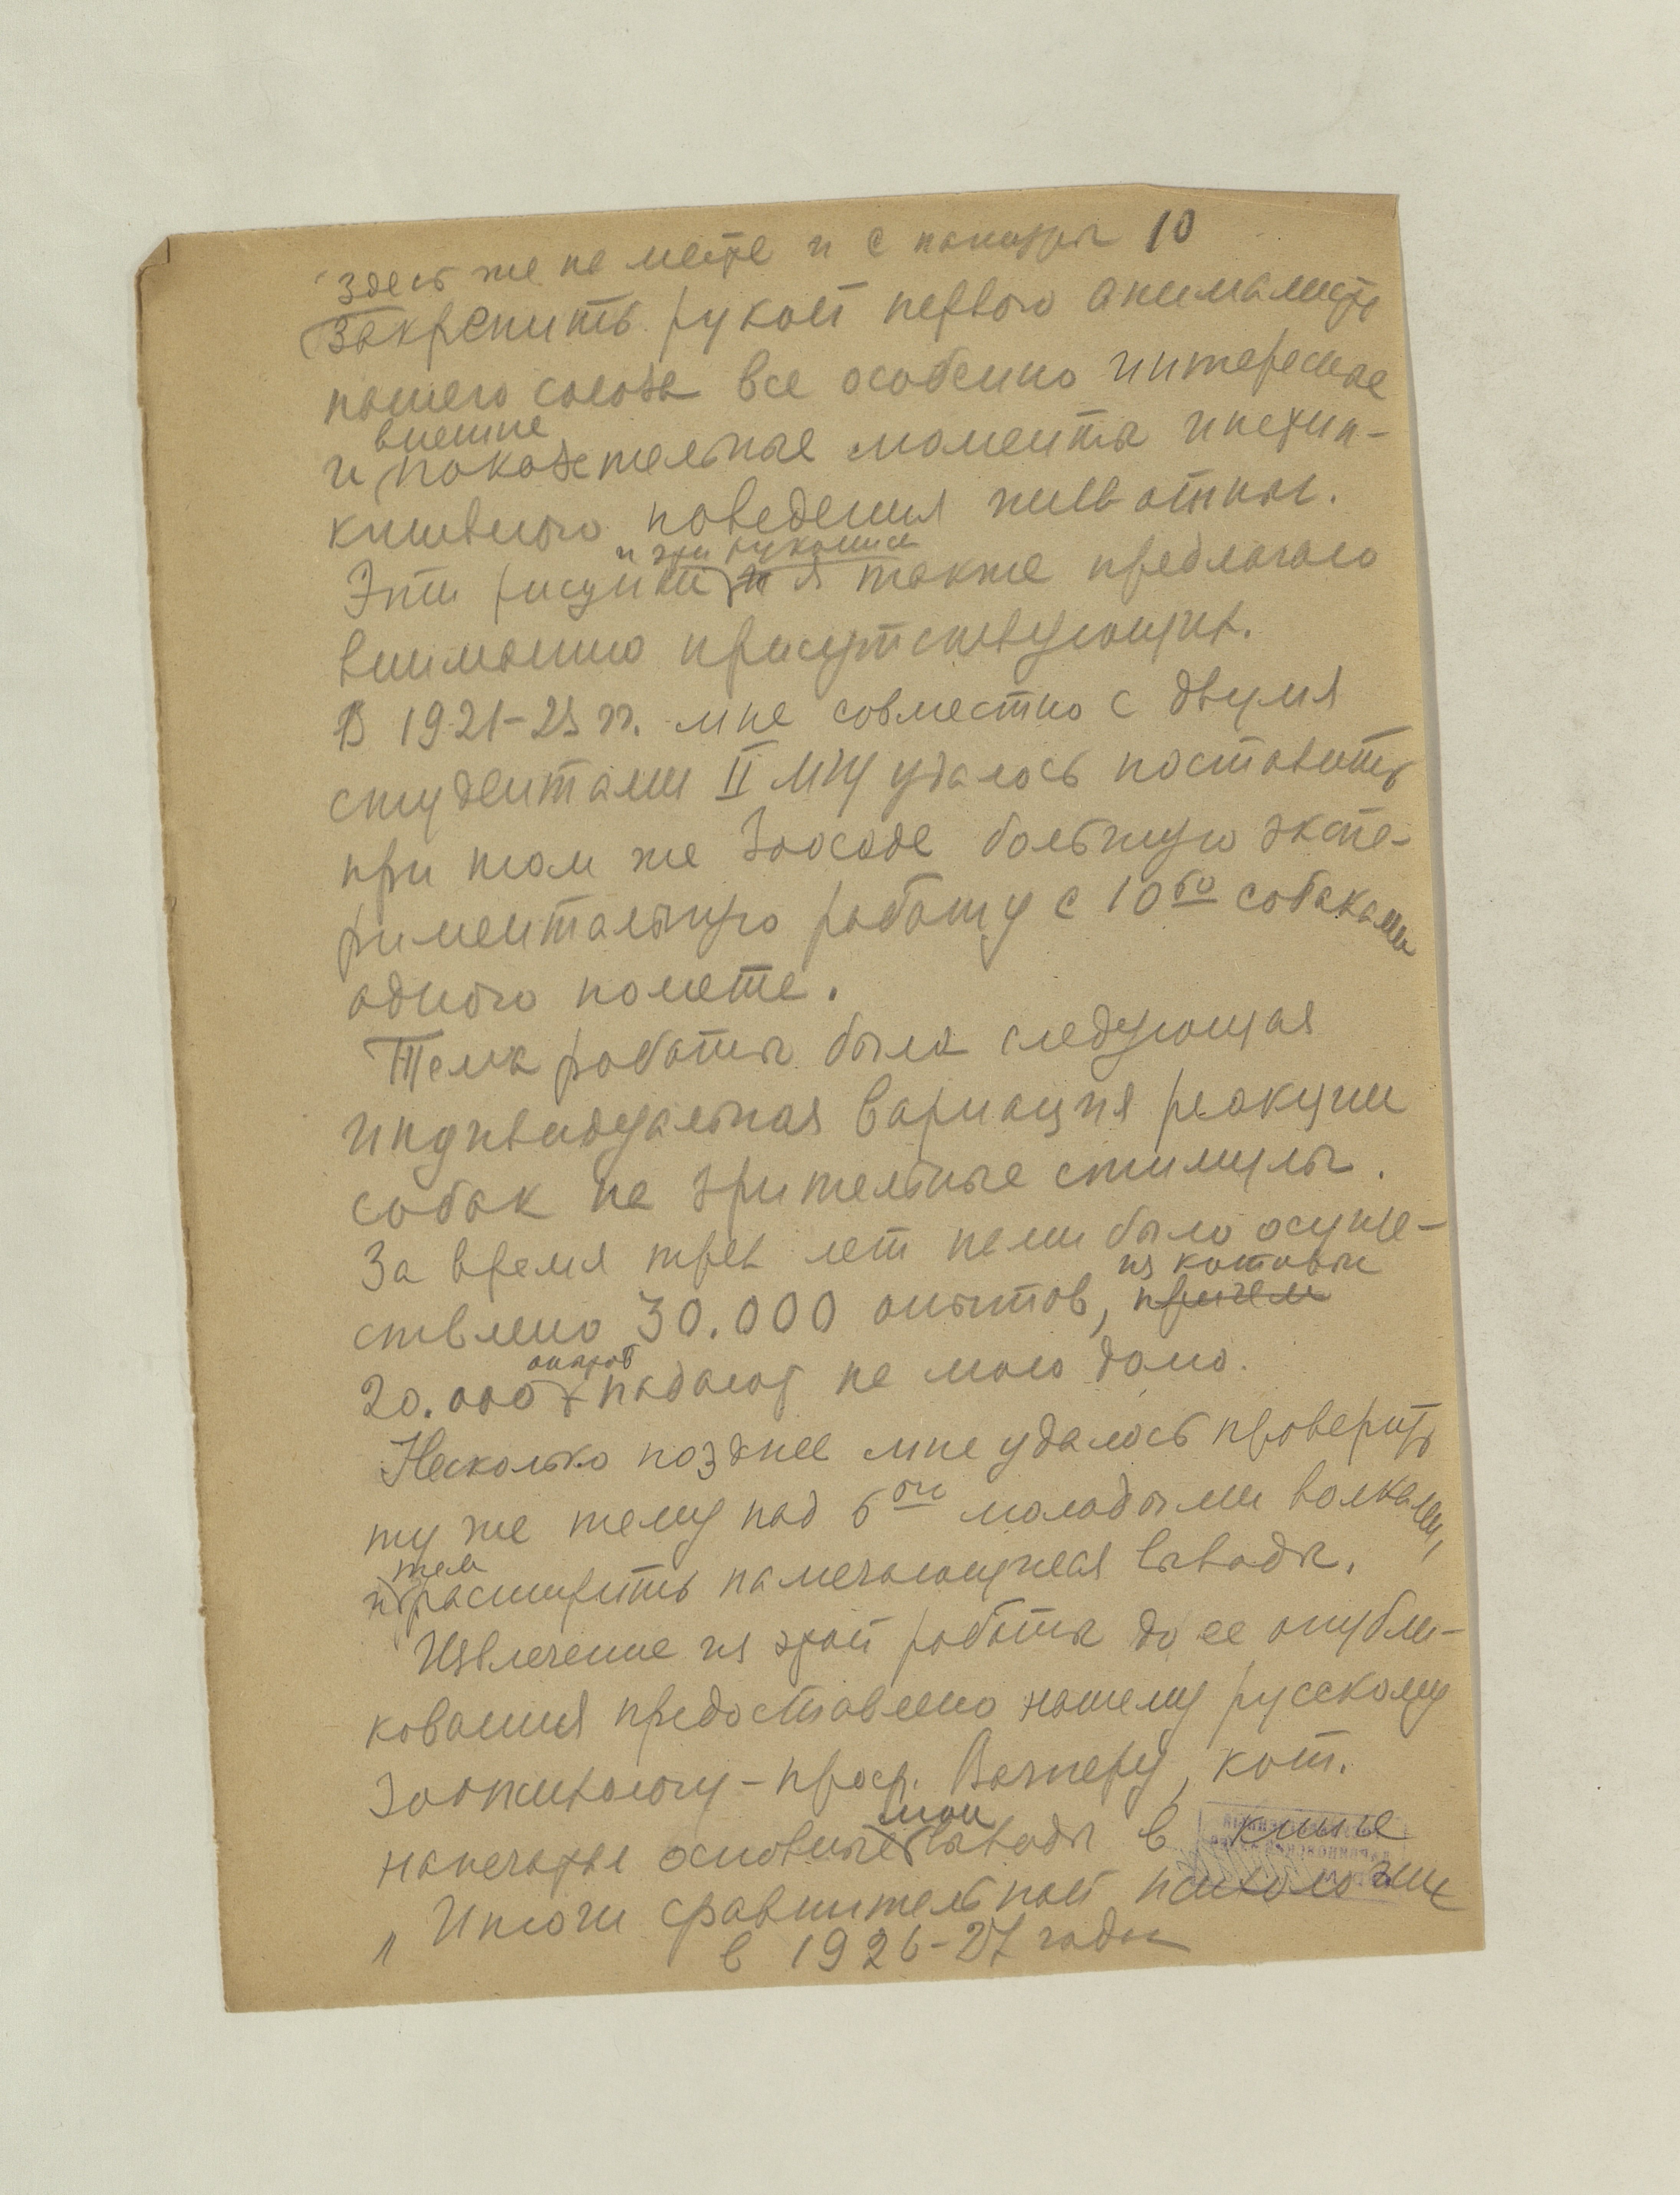 10
здесь же на месте и с натуры
закрепить рукой первого анималиста
нашего союза все особенно интересные
внешне
и показательные моменты инстин-
ктивного поведения животных.
и эти рукописи
Эти рисунки я также предлагаю
вниманию присутствующих.
В 1921-23 гг. мне совместно с двумя
студентами II МГУ удалось поставить
при том же Зоосаде большую экспе-
риментальную работу с 10ью собаками
одного помета.
Тема работы была следующая
индивидуальная вариация реакции
собак на зрительные стимулы.
За время трех лет нами было осуще-
из которых
ствлено 30.000 опытов, причем
опытов
20.000 падают на мою долю.
Несколько позднее мне удалось проверить
ту же тему над 6ью молодыми волками,
тем
и расширить намечающиеся выводы.
Извлечение из этой работы до ее опубли-
кования предоставлено нашему русскому
зоопсихологу - проф. Вагнеру, кот.
мои
напечатал основные выводы в книге
"Итоги сравнительной психологии
в 1926-27 годы